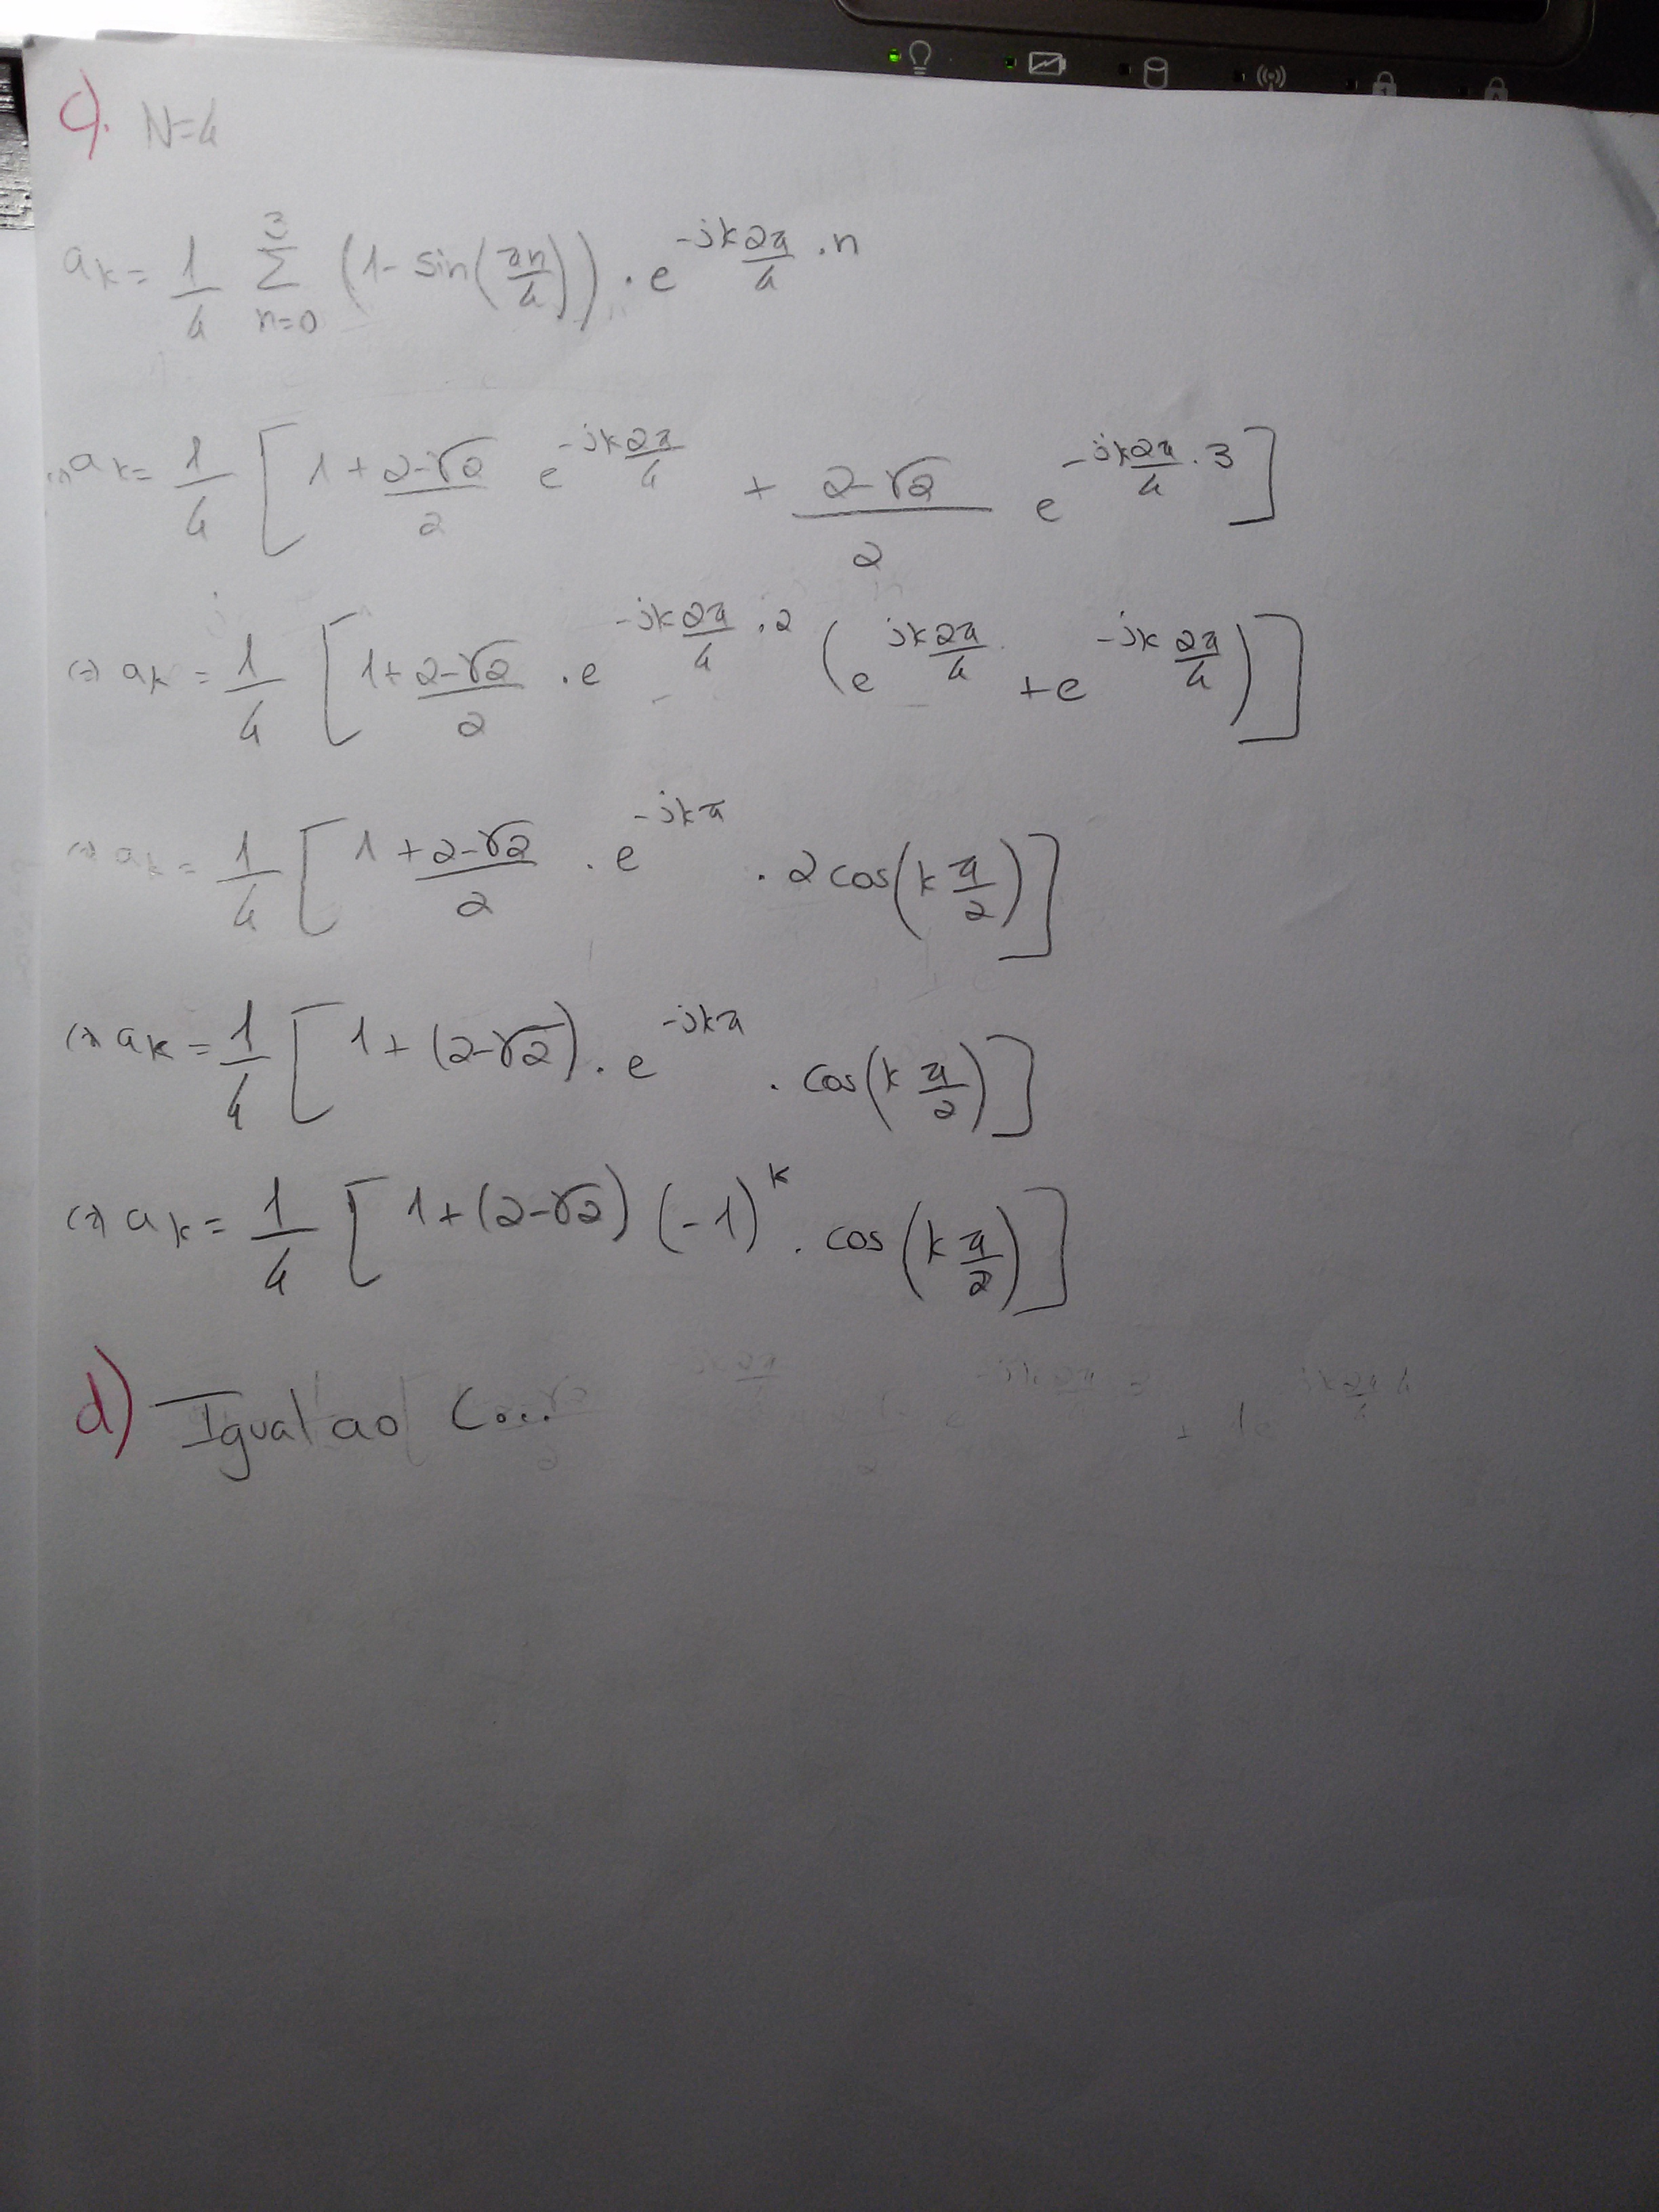 c). N=4
a_k = 1/4 Σ_{n=0}^{3} (1 - sin(πn/4)) · e^{-jk 2π/4 · n}
(=) a_k = 1/4 [1 + (2-√2)/2 e^{-jk 2π/4} + (2-√2)/2 e^{-jk 2π/4 · 3}]
(=) a_k = 1/4 [1 + (2-√2)/2 · e^{-jk 2π/4 · 2} (e^{jk 2π/4} + e^{-jk 2π/4})]
(=) a_k = 1/4 [1 + (2-√2)/2 · e^{-jkπ} · 2cos(k π/2)]
(=) a_k = 1/4 [1 + (2-√2) · e^{-jkπ} · cos(k π/2)]
(=) a_k = 1/4 [1 + (2-√2) (-1)^k · cos(k π/2)]
d) Igual ao C...